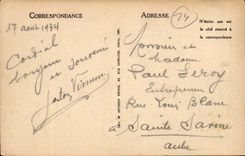 CORRESPONDANCE
17 août 1934
Cordial
bonjour
et souvenir
ADRESSE
N'écrire que sur
le côté réservé à
la correspondance
74
Monsieur et
Madame
Paul Leroy
Entrepreneur
Rue Louis Blanc
à Sainte Savine
Aube